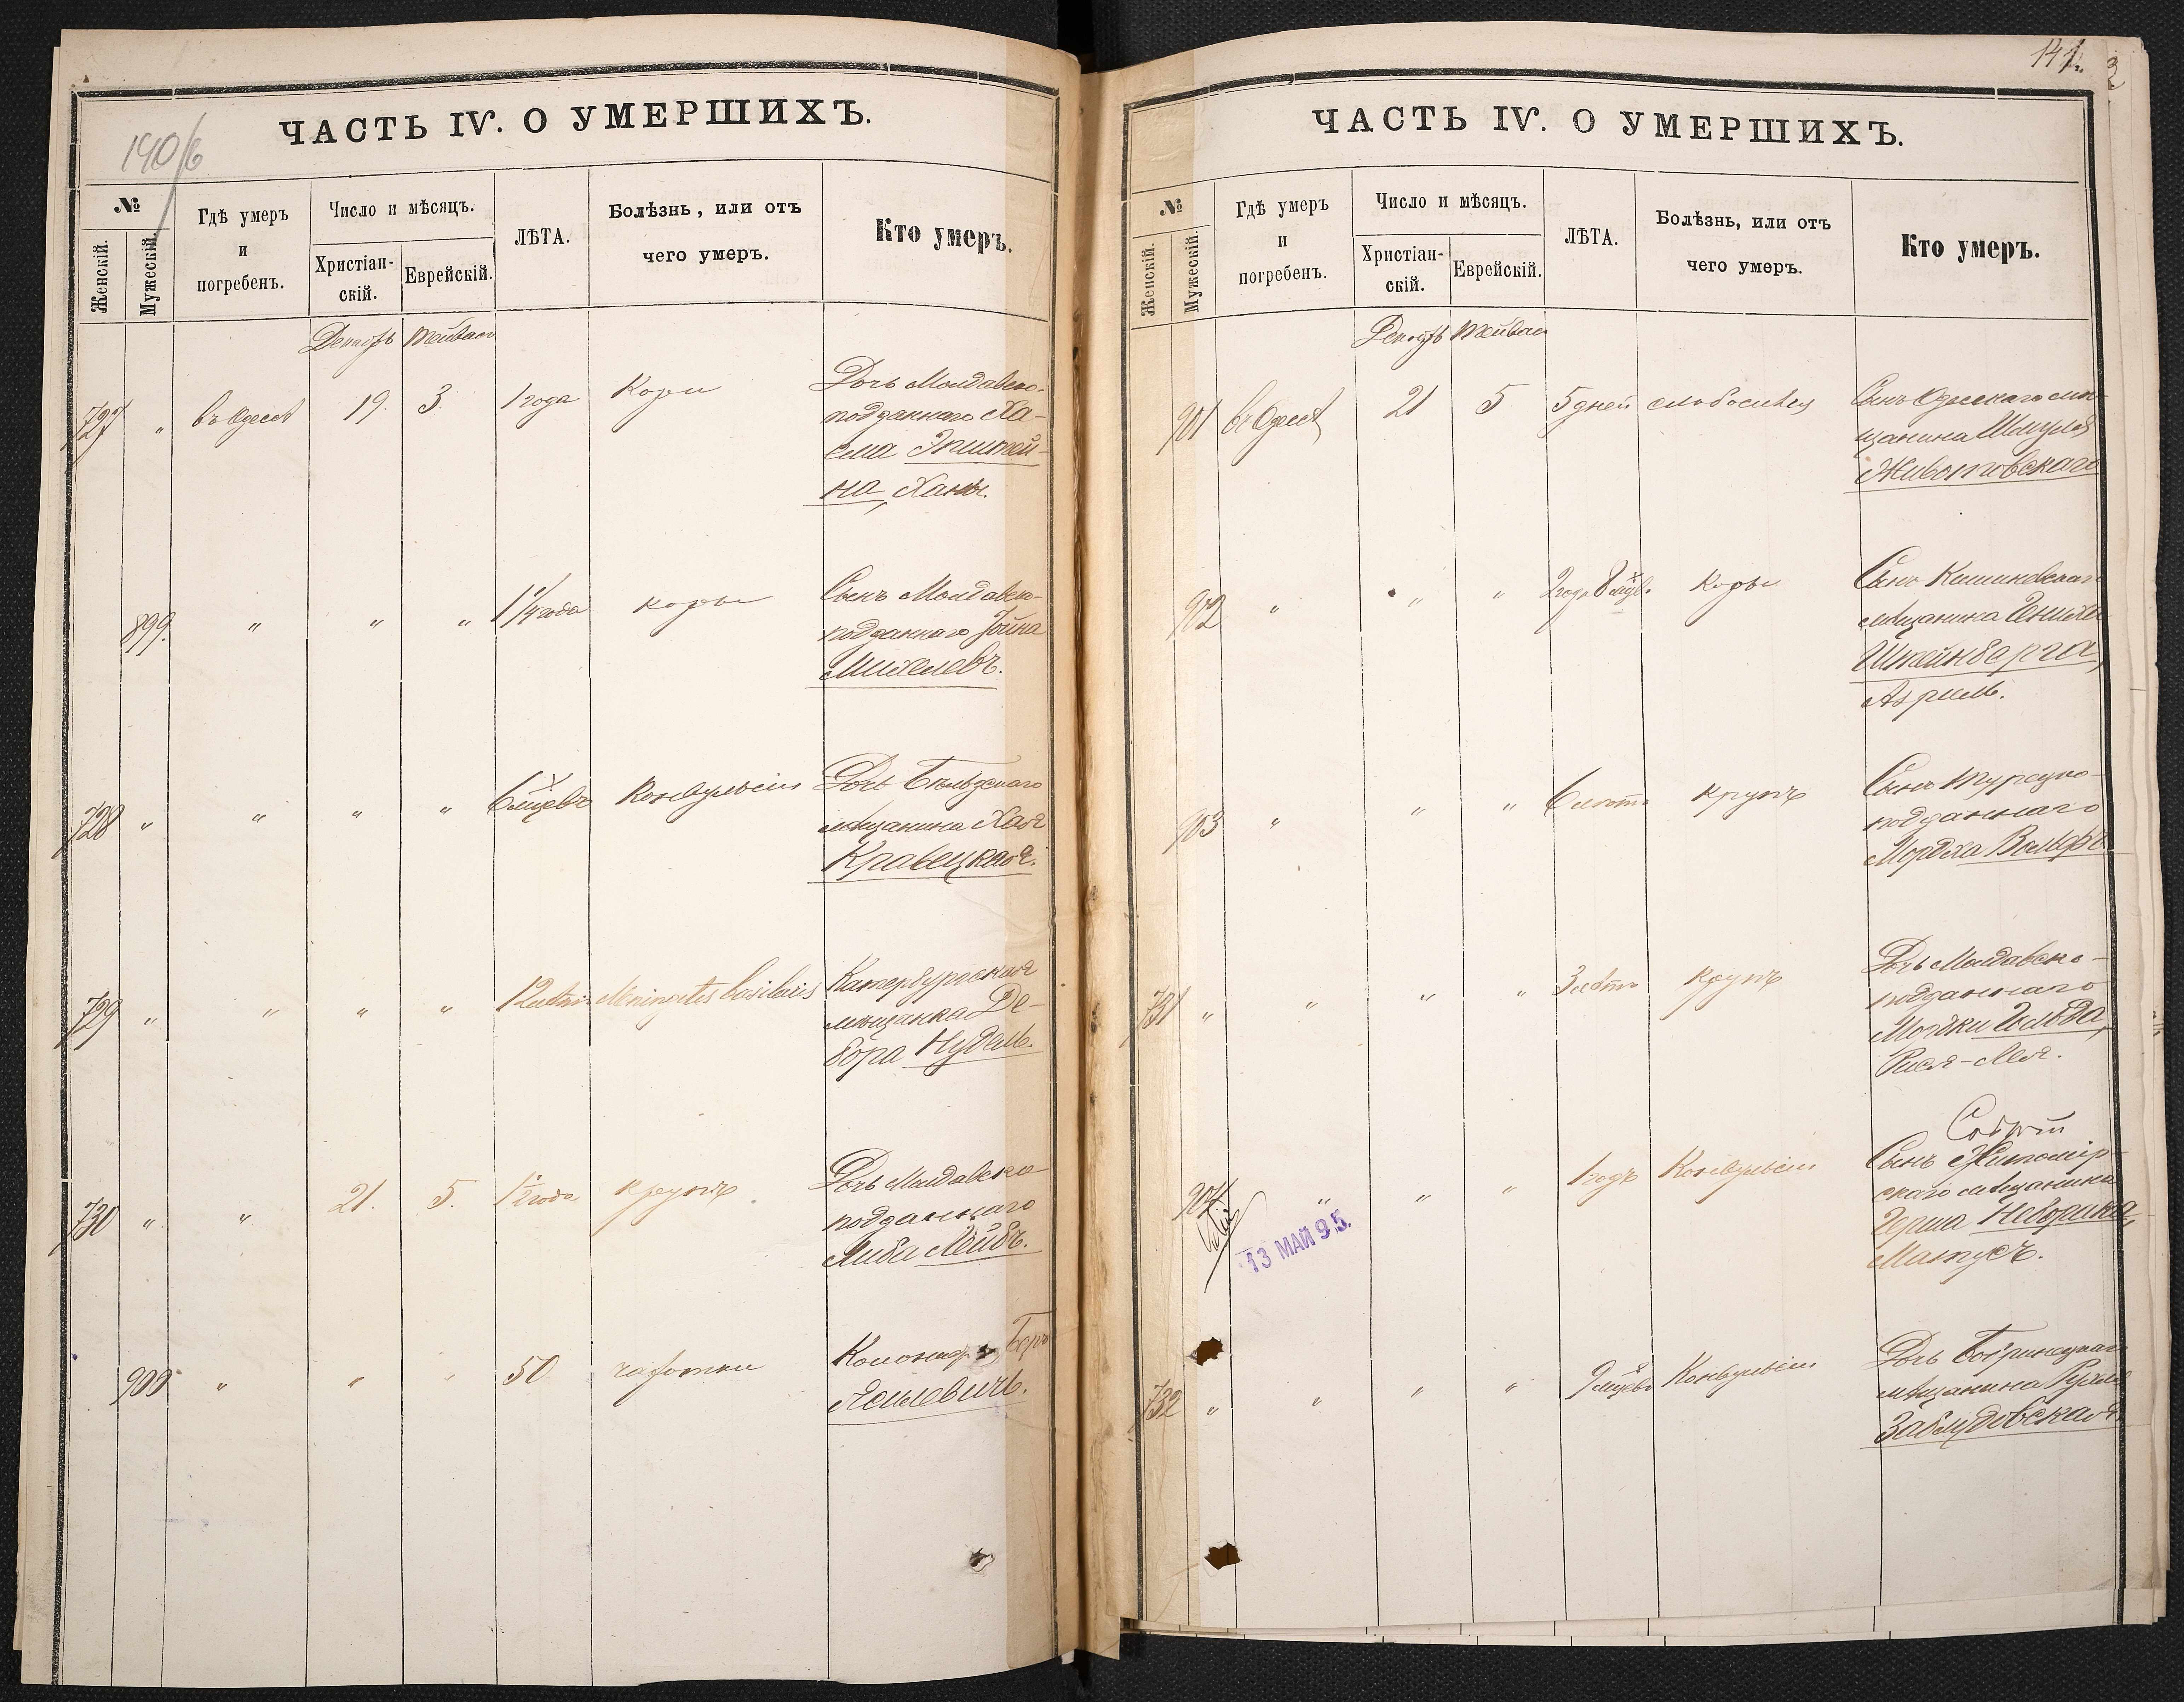 140/б
ЧАСТЬ IV. О УМЕРШИХЪ.
№
Женскій.
Мужескій.
Гдѣ умеръ
и
погребенъ.
Число и мѣсяцъ.
Христіан-
скій.
Еврейскій.
ЛѢТА.
Болѣзнь, или отъ
чего умеръ.
Кто умеръ.
727 " въ Одессѣ 19. 3. 1 года Кори
Дочь Молдавско-
подданнаго Ха-
има Эпштей-
на, Хана.
899. " " " 1 1/4 года кори
Сынъ Молдавско-
подданнаго Іойна
Михелевъ.
728 " " " " 6 мцевъ Конвульсіи
Дочь Бѣльцскаго
мѣщанина Хая
Кравецкая.
729 " " " " 12 лѣтъ Meningitis basilaris
Катербургская
мѣщанка Де-
бора Нудель.
730 " " 21. 5. 1/2 года крупъ
Дочь Молдавско
подданнаго
Либа Лейбъ.
900 " " " 50 чахотки
Беръ
Ясилевичъ.
141.
ЧАСТЬ IV. О УМЕРШИХЪ.
№
Женскій.
Мужескій.
Гдѣ умеръ
и
погребенъ.
Число и мѣсяцъ.
Христіан-
скій.
Еврейскій.
ЛѢТА.
Болѣзнь, или отъ
чего умеръ.
Кто умеръ.
901 въ Одессѣ 21 5 5 дней слабосилія
Сынъ Одесскаго мѣ-
щанина Шмуля
Животовскаго
902 " " " 2 года 8 мцев. Кори
Сынъ Кишиневскаго
мѣщанина Еніхи
Штейнберга,
Азриль.
903 " " " 6 лѣтъ крупъ
Сынъ турецко-
подданнаго
Мордха Вольфъ
731 " " " " 3 лѣтъ крупъ
Дочь Молдавско-
подданнаго
Мордки Гольда,
Рися-Лея.
904 " " " 1 годъ Конвульсіи
Сынъ Житомір-
скаго мѣщанина
Герша
Матусъ.
13 МАЙ 95.
732 " " " " 9 мцевъ Конвульсіи
Дочь Бобринецкаго
мѣщанина Рухля
Заблудовская